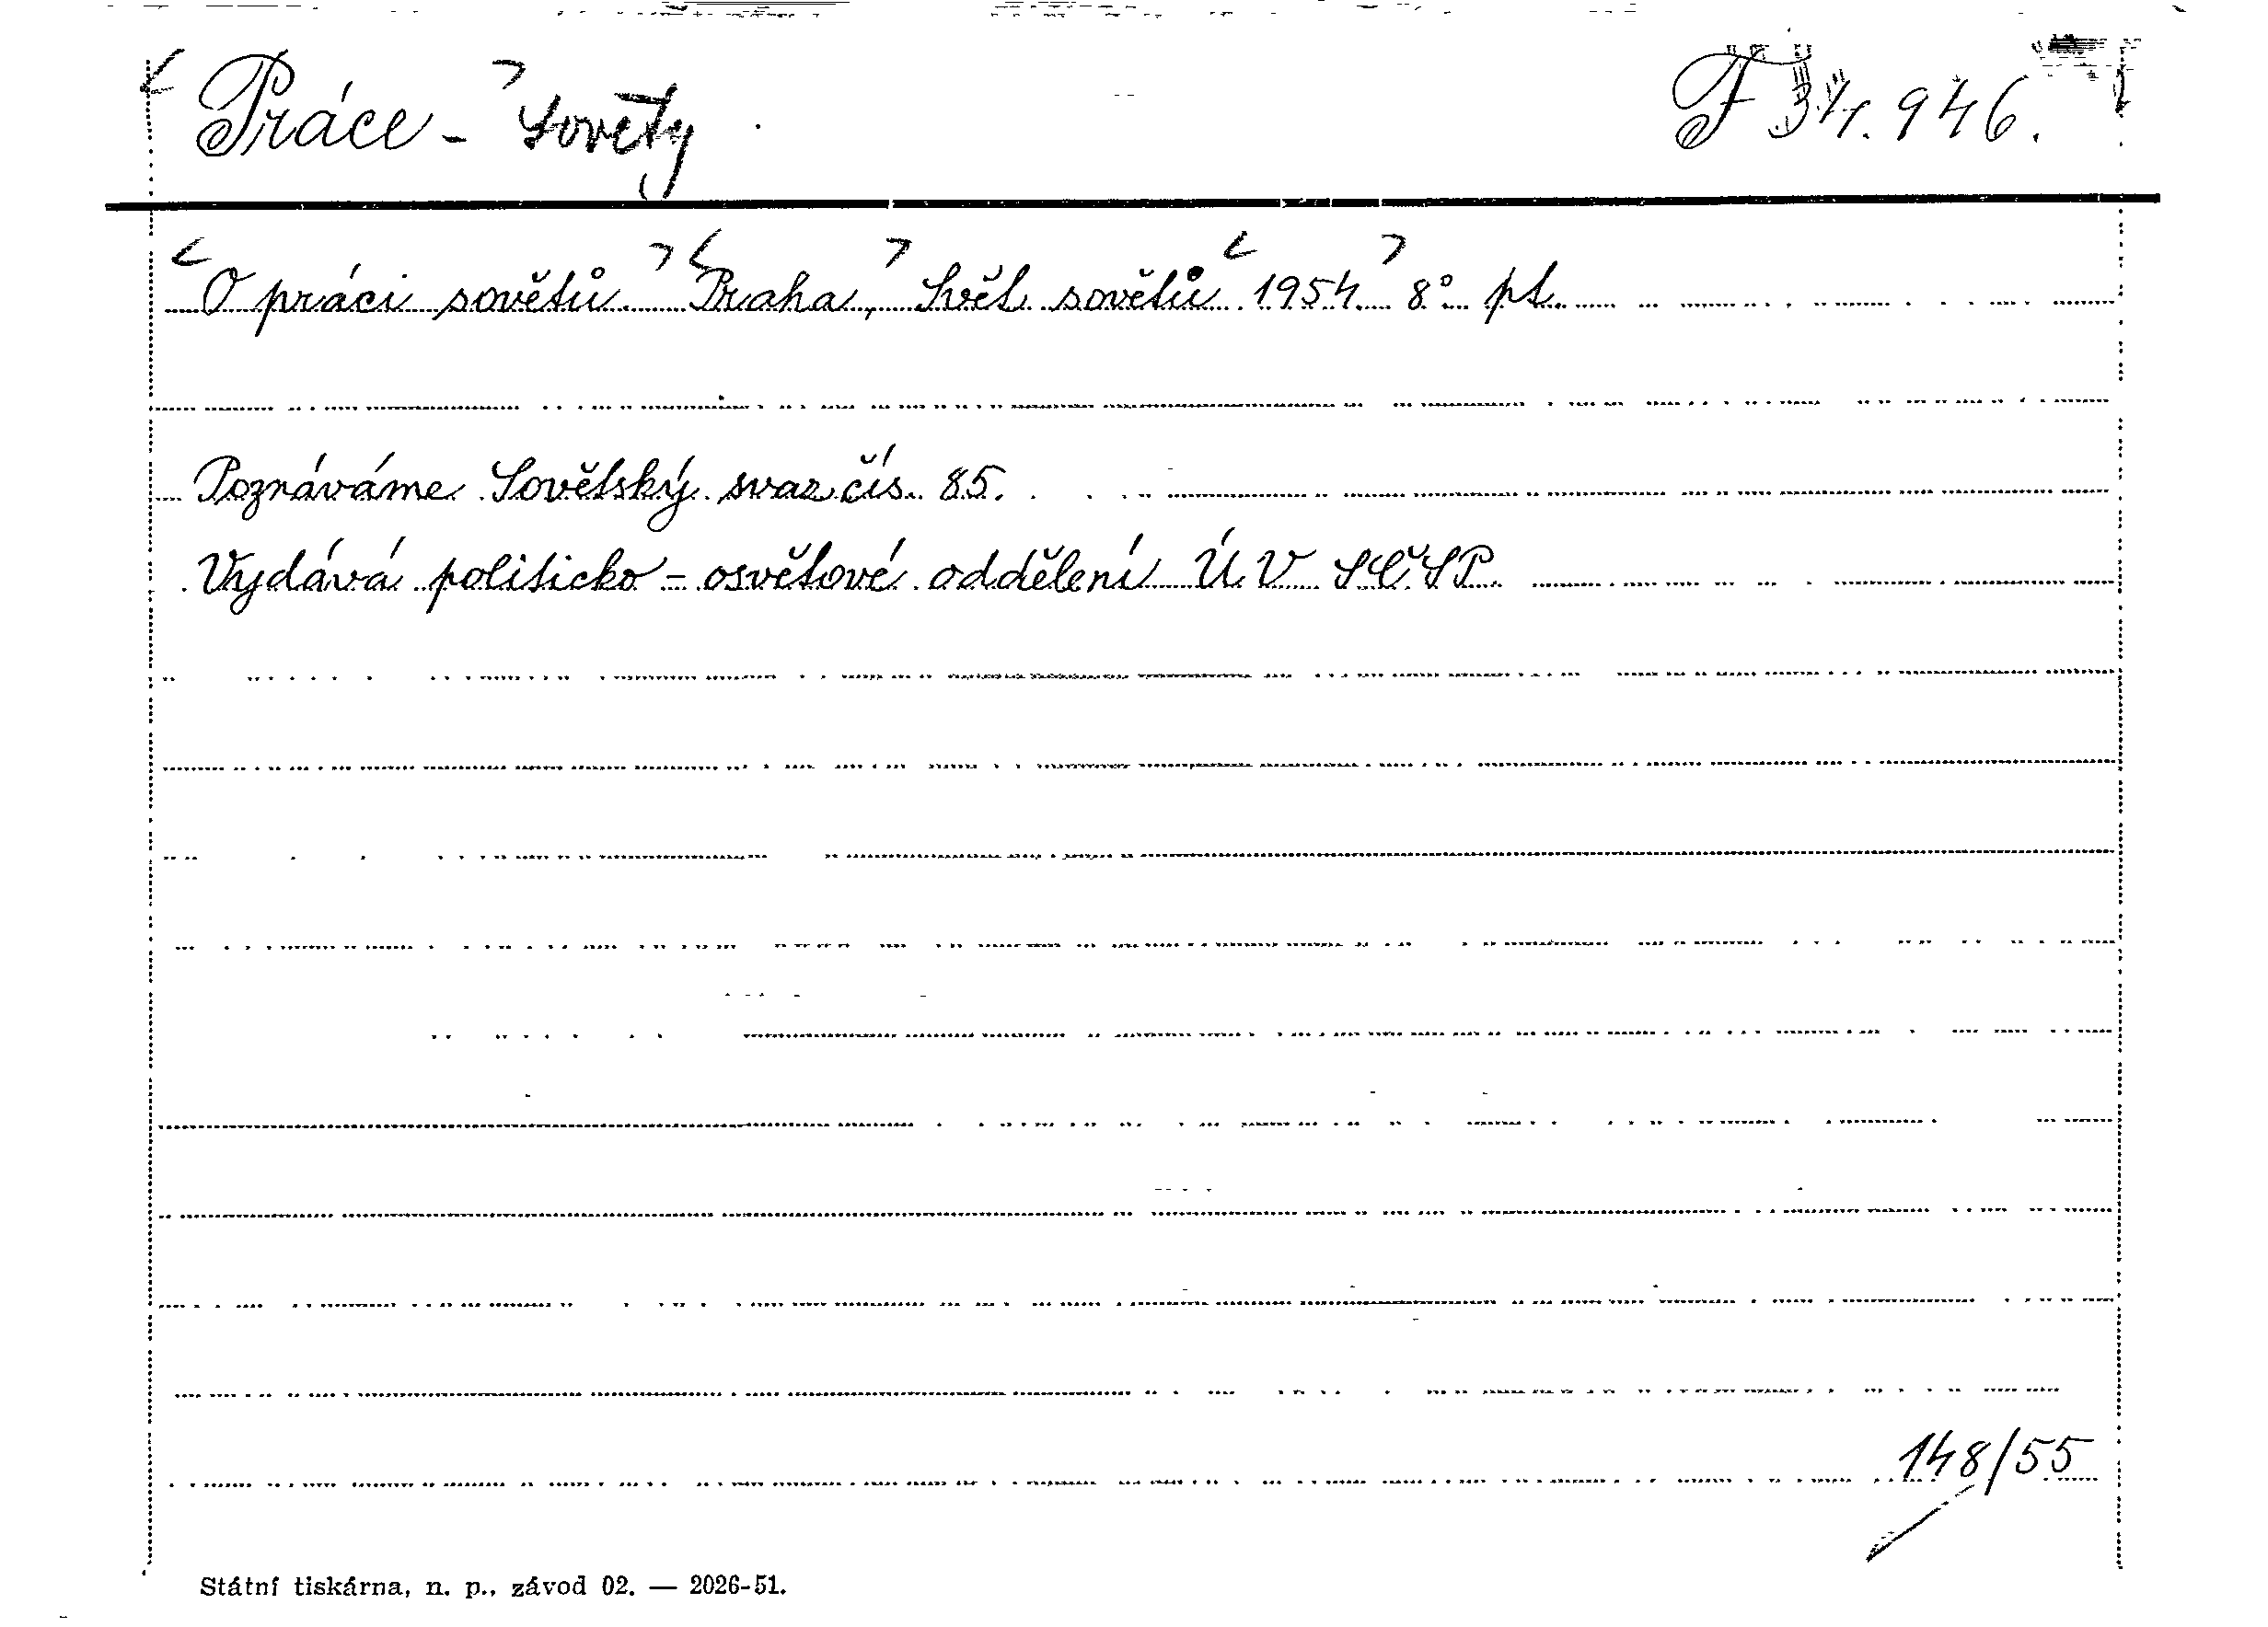 Práce - Sověty
F 34.946.
O práci sovětů. Praha, Svět sovětů 1954. 8° pt.
Poznáváme Sovětský svaz čís. 85.
Vydává politicko - osvětové oddělení ÚV SČSP.
148/55
Státní tiskárna, n. p., závod 02. — 2026-51.